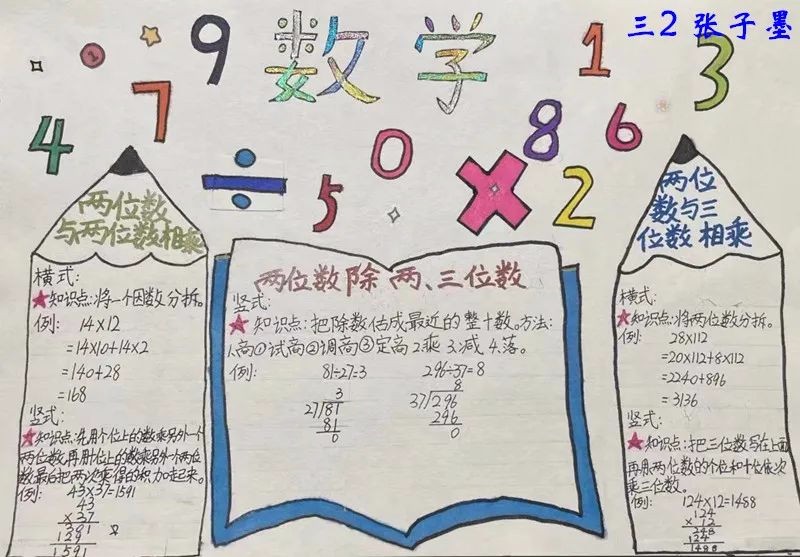 三2 张子墨
数学
9
1
3
7
4
8
6
÷
5
0
×
2
两位数
与两位数相乘
横式:
★知识点:将一个因数分拆。
例: 14×12
=14×10+14×2
=140+28
=168
竖式:
★知识点:先用个位上的数乘另外一个
两位数再用十位上的数乘另外一个两位
数,最后把两次乘得的积加起来。
例: 43×37=1591
43
×37
301
129
1591
两位数除两、三位数
竖式:
★知识点:把除数估成最近的整十数。方法:
1.商①试商②调商③定商2.乘3.减4.落。
例: 81÷27=3 296÷37=8
3
27 81
81
0
8
37 296
296
0
两位
数与三
位数相乘
横式:
★知识点:将两位数分拆。
例: 28×112
=20×112+8×112
=2240+896
=3136
竖式:
★知识点:把三位数写在上面
再用两位数的个位和十位依次
乘三位数。
例: 124×12=1488
124
×12
248
124
1488